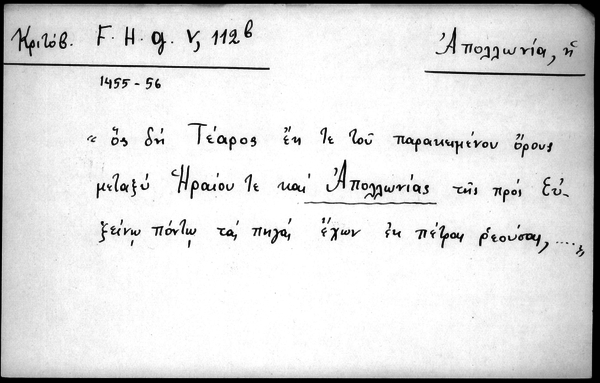 Κριτόβ. F. H. g. V, 112ᵇ
Ἀπολλωνία, ἡ
1455-56
"ὃς δὴ Τέαρος ἔκ τε τοῦ παρακειμένου ὄρους
μεταξὺ Ἡραίου τε καὶ Ἀπολλωνίας τῆς πρὸς Εὐ-
ξείνῳ πόντῳ τὰς πηγὰς ἔχων ἐκ πέτρας ῥεούσας, ....,